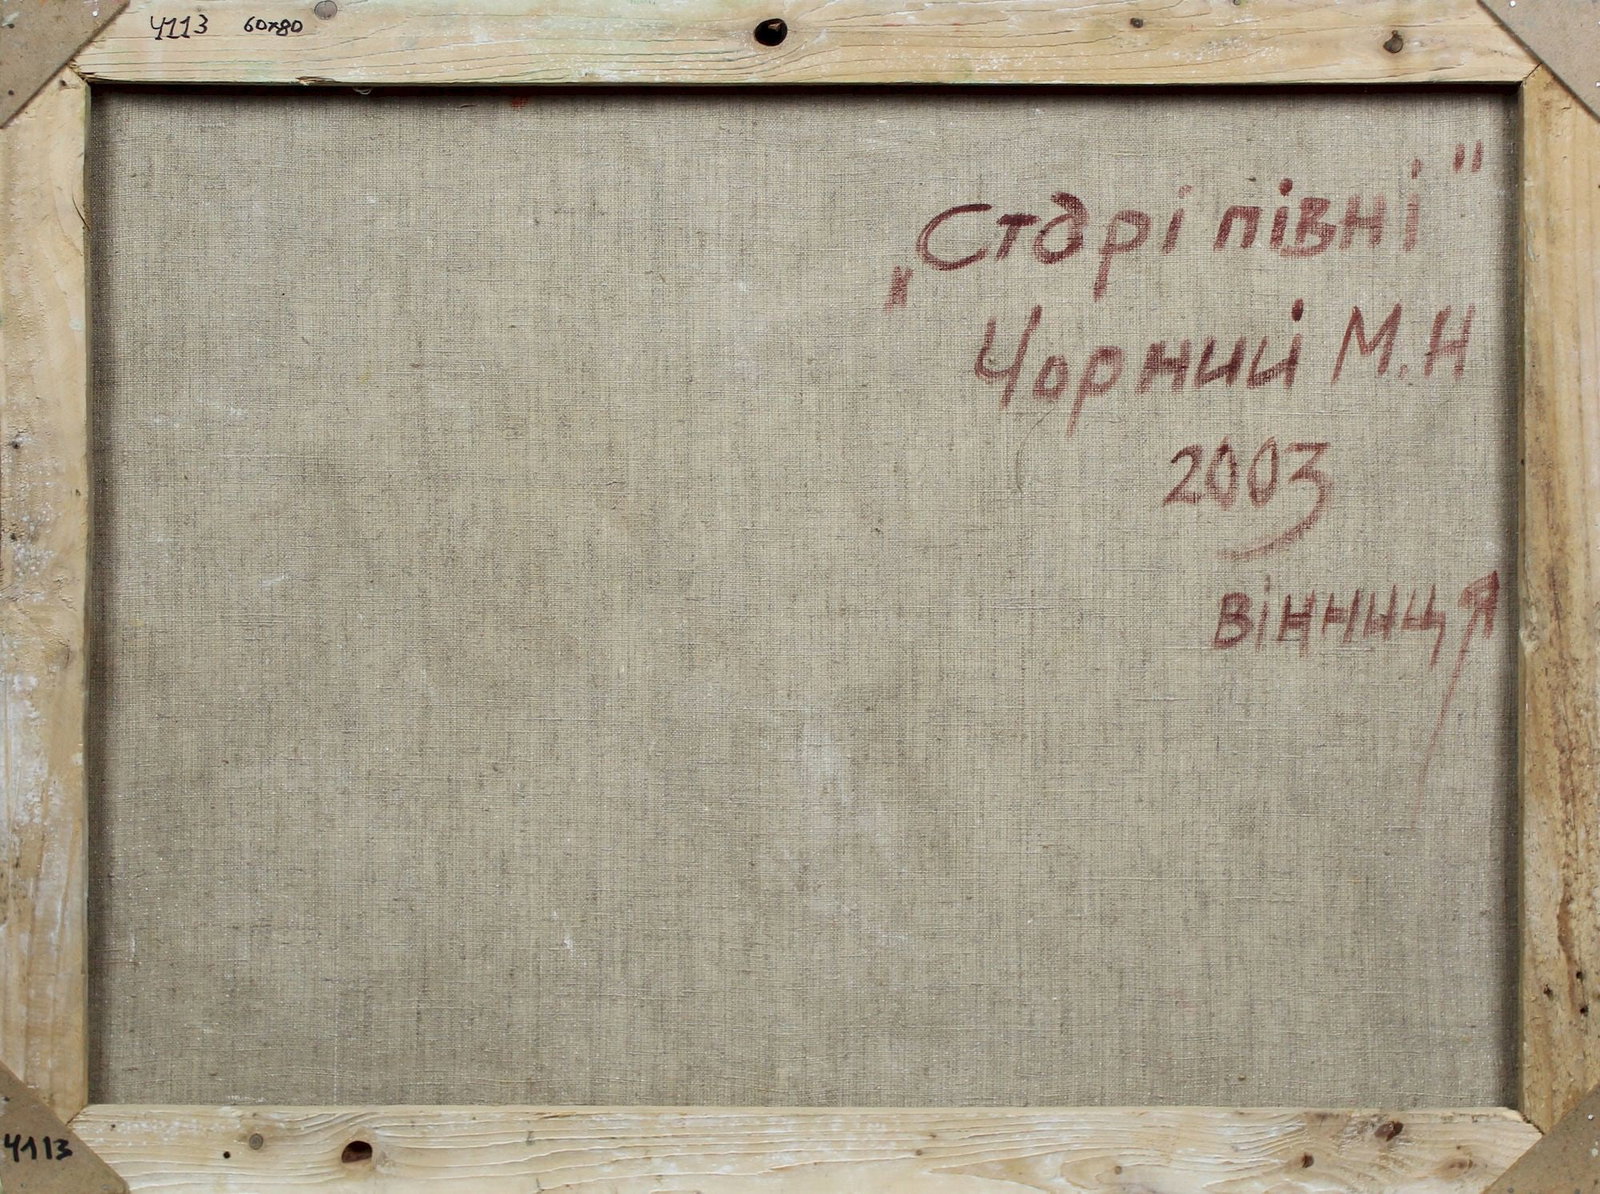 4113 60x80
„Старі півні"
Чорний М.Н
2003
Вінниця
4113